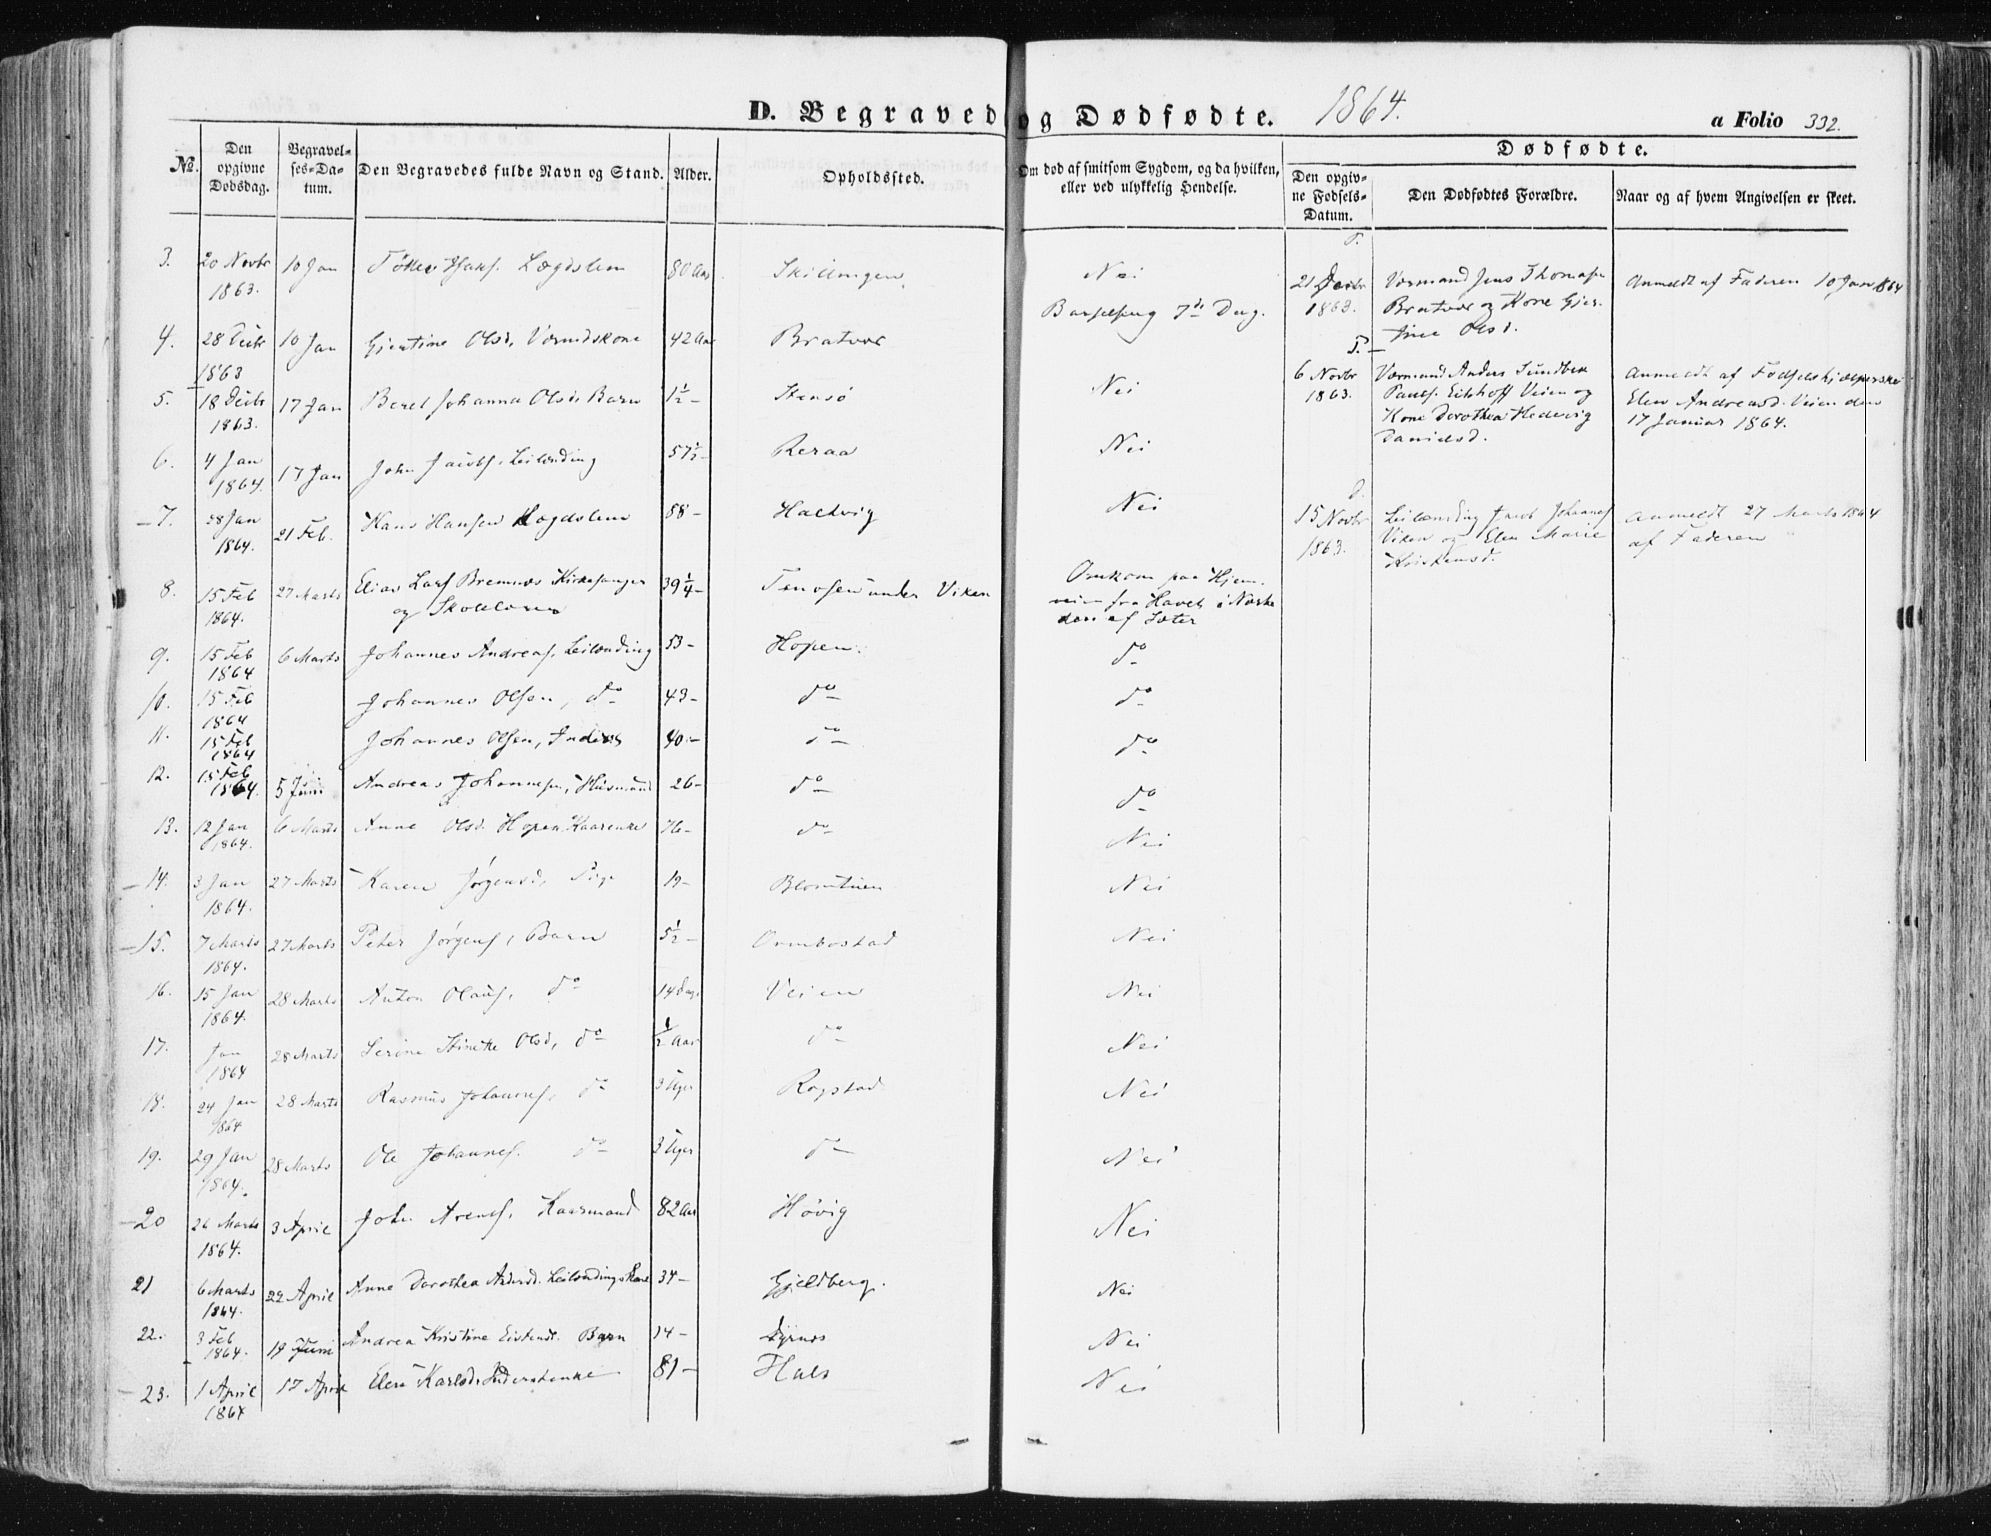 D. Begravede og Dødfødte. 1864. a Folio 332.
No. Den opgivne Dødsdag. Begravelses-Datum. Den Begravedes fulde Navn og Stand. Alder. Opholdssted. Om død af smitsom Sygdom, og da hvilken, eller ved ulykkelig Hendelse. Dødfødte.
Den opgivne Fødsels-Datum. Den Dødfødtes Forældre. Naar og af hvem Angivelsen er skeet.
3. 20 Novbr 1863. 10 Jan Lægdslem 80 Aar Skillingen Nei
4. 28 Decbr 1863 10 Jan Gjertine Olsd. 42 Aar Bratvær Barselseng 7de Dag.
5. 18 Decbr 1863. 17 Jan Beret Johanna Olsd. Barn 1½ - Stensø Nei
6. 4 Jan 1864. 17 Jan John Jacobs. Leilænding 57½ - Reraa Nei
7. 28 Jan 1864. 21 Feb. Hans Hansen Lægdslem 58 - Haltvig Nei
8. 15 Feb 1864. 27 Marts Elias Lars. Bremnes Kirkesanger og Skolelærer 39¼ - under Viken Omkom paa Hjemveien fra Havet
9. 15 Feb 1864 6 Marts Johannes Andreas. Leilænding 53 - Hopen do
10. 15 Feb 1864 Johannes Olsen, do 43 - do do
11. 15 Feb 1864 Johannes Olsen, Inderst 40 - do do
12. 15 Feb 1864. 5 Juni Andreas Johannesen, Husmand 26 - do do
13. 12 Jan 1864. 6 Marts Anne Olsd. Hopen Kaarenke 76 - do Nei
14. 3 Jan 1864. 27 Marts Karen Jørgensd. Pige 19 - Blomtuen Nei
15. 7 Marts 1864. 27 Marts Peter Jørgens. Barn 5½ - Ormbostad Nei
16. 15 Jan 1864. 28 Marts Anton Olaus. do 14 Dag. Veien Nei
17. Jan 1864 28 Marts Serine Olsd, do ½ Aar do Nei
18. 24 Jan 1864 28 Marts Rasmus Johannes. do 3 Uger Rogstad Nei
19. 29 Jan 1864. 28 Marts Ole Johannes. do 3 Uger do Nei
20 26 Marts 1864. 3 April John Arents. Kaarmand 82 Aar Høvig Nei
21 6 Marts 1864. 22 April Anne Dorothea Leilændingskone 34 - Gjeldberg. Nei
22. 3 Feb 1864. 19 Juni Andrea Kristine Barn 14 - Dyrnes Nei
23. 1 April 1864 17 April Elen Karlsd. Inderstenke 81 - Hals Nei
21 Decbr 1863. Vormand Jens Thomasen Bratvær og Kone Gjertine Olsd. Anmeldt af Faderen 10 Jan 1864
6 Novbr 1863. Vormand Anders Sundbek Veien og Kone Dorothea Hedevig Danielsd. Anmeldt af Fødselshjælperske Elen Andreasd. Veien den 17 Januar 1864.
15 Novbr 1863. Leilænding Jacob Johannes. Viken og Elen Marie Kristensd. Anmeldt 27 Marts 1864 af Faderen